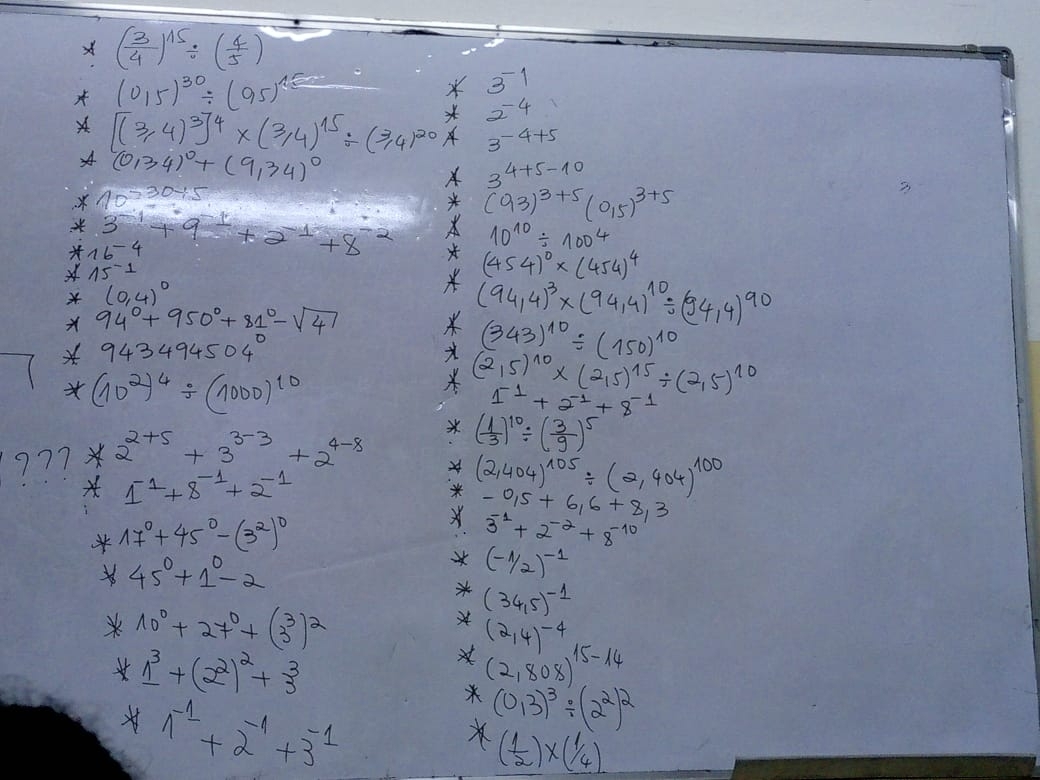 * (3/4)¹⁵ ÷ (4/5)
* (0,5)³⁰ ÷ (0,5)¹⁵
* [(3,4)³]⁴ × (3,4)¹⁵ ÷ (3,4)²⁰
* (0,34)⁰ + (9,34)⁰
* 10⁻³⁰⁺⁵
* 3⁻¹ + 9⁻¹ + 2⁻¹ + 8⁻²
* 16⁻⁴
* 15⁻¹
* (0,4)⁰
* 94⁰ + 950⁰ + 81⁰ - √4
* 943494504⁰
* (10²)⁴ ÷ (1000)¹⁰
???
* 2²⁺⁵ + 3³⁻³ + 2⁴⁻⁸
* 1⁻¹ + 8⁻¹ + 2⁻¹
* 17⁰ + 45⁰ - (3²)⁰
* 45⁰ + 1⁰ - 2
* 10⁰ + 27⁰ + (3/3)²
* 1³ + (2²)² + 3/3
* 1⁻¹ + 2⁻¹ + 3⁻¹
* 3⁻¹
* 2⁻⁴
* 3⁻⁴⁺⁵
* 3⁴⁺⁵⁻¹⁰
* (0,3)³⁺⁵ (0,5)³⁺⁵
* 10¹⁰ ÷ 100⁴
* (454)⁰ × (454)⁴
* (94,4)³ × (94,4)¹⁰ ÷ (94,4)⁹⁰
* (343)¹⁰ ÷ (150)¹⁰
* (2,5)¹⁰ × (2,5)¹⁵ ÷ (2,5)¹⁰
* 1⁻¹ + 2⁻¹ + 8⁻¹
* (1/3)¹⁰ ÷ (3/9)⁵
* (2,404)¹⁰⁵ ÷ (2,404)¹⁰⁰
* -0,5 + 6,6 + 8,3
* 3⁻¹ + 2⁻² + 8⁻¹⁰
* (-1/2)⁻¹
* (34,5)⁻¹
* (2,4)⁻⁴
* (2,808)¹⁵⁻¹⁴
* (0,3)³ ÷ (2²)²
* (1/2) × (1/4)
3